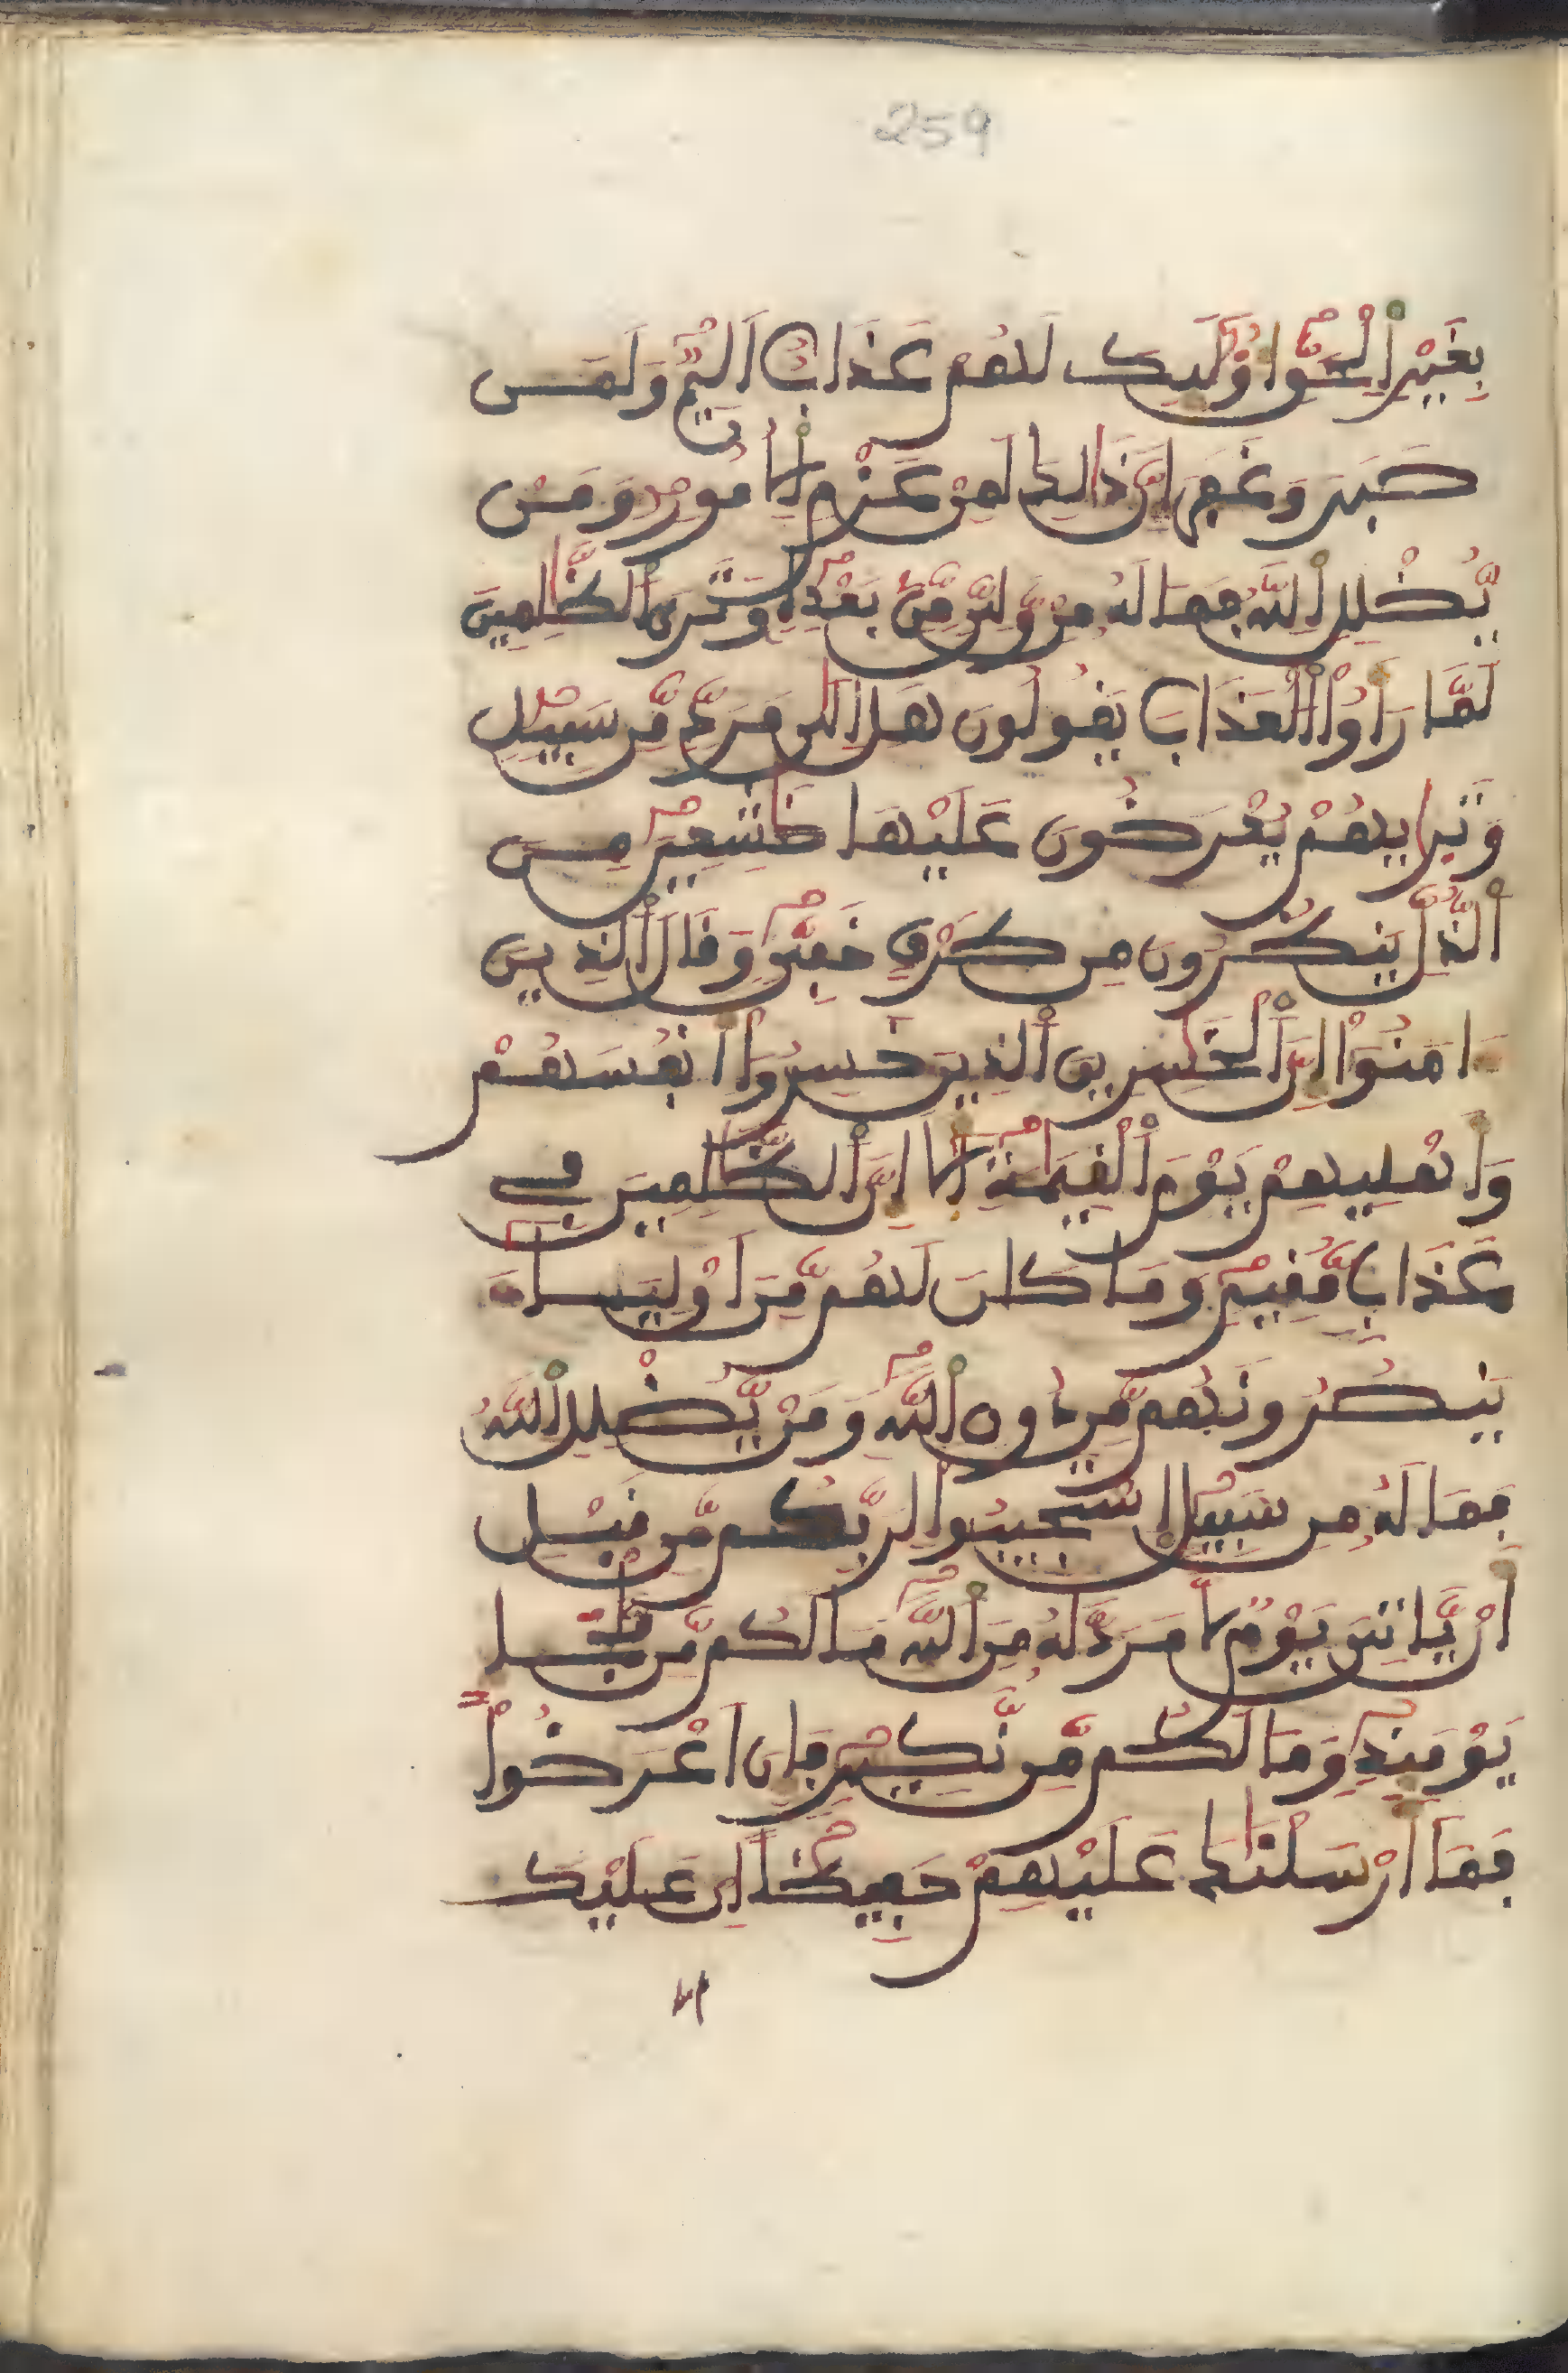 259
بِغَيْرِ اِ۬لْحَقِّ أُوْلَٰٓئِكَ لَهُمْ عَذَابٌ اَلِيمٌ وَلَمَن
صَبَرَ وَغَفَرَ إِنَّ ذَٰلِكَ لَمِنْ عَزْمِ اِ۬لْأُمُورِ وَمَنْ
يُّضْلِلِ اِ۬للَّهُ فَمَا لَهُۥ مِنْ وَّلِيٍّ مِّنۢ بَعْدِهِۦ وَتَرَى اَ۬لظَّٰلِمِينَ
لَمَّا رَأَوُاْ اُ۬لْعَذَابَ يَقُولُونَ هَلِ اِلَىٰ مَرَدٍّ مِّن سَبِيلٍ
وَتَرَىٰهُمْ يُعْرَضُونَ عَلَيْهَا خَٰشِعِينَ مِنَ
اَ۬لذُّلِّ يَنظُرُونَ مِن طَرْفٍ خَفِيٍّ وَقَالَ اَ۬لذِينَ
ءَامَنُوٓاْ إِنَّ اَ۬لْخَٰسِرِينَ اَ۬لذِينَ خَسِرُوٓاْ أَنفُسَهُمْ
وَأَهْلِيهِمْ يَوْمَ اَ۬لْقِيَٰمَةِ أَلَآ إِنَّ اَ۬لظَّٰلِمِينَ فِے
عَذَابٍ مُّقِيمٍ وَمَا كَانَ لَهُم مِّنَ اَوْلِيَآءَ
يَنصُرُونَهُم مِّن دُونِ اِ۬للَّهِ وَمَنْ يُّضْلِلِ اِ۬للَّهُ
فَمَا لَهُۥ مِن سَبِيلٍ اِ۪سْتَجِيبُواْ لِرَبِّكُم مِّن قَبْلِ
أَنْ يَّاتِيَ يَوْمٌ لَّا مَرَدَّ لَهُۥ مِنَ اَ۬للَّهِ مَا لَكُم مِّن مَّلْجَإٍ
يَوْمَئِذٍ وَمَا لَكُم مِّن نَّكِيرٍ فَإِنَ اَعْرَضُواْ
فَمَآ أَرْسَلْنَٰكَ عَلَيْهِمْ حَفِيظاً اِنْ عَلَيْكَ